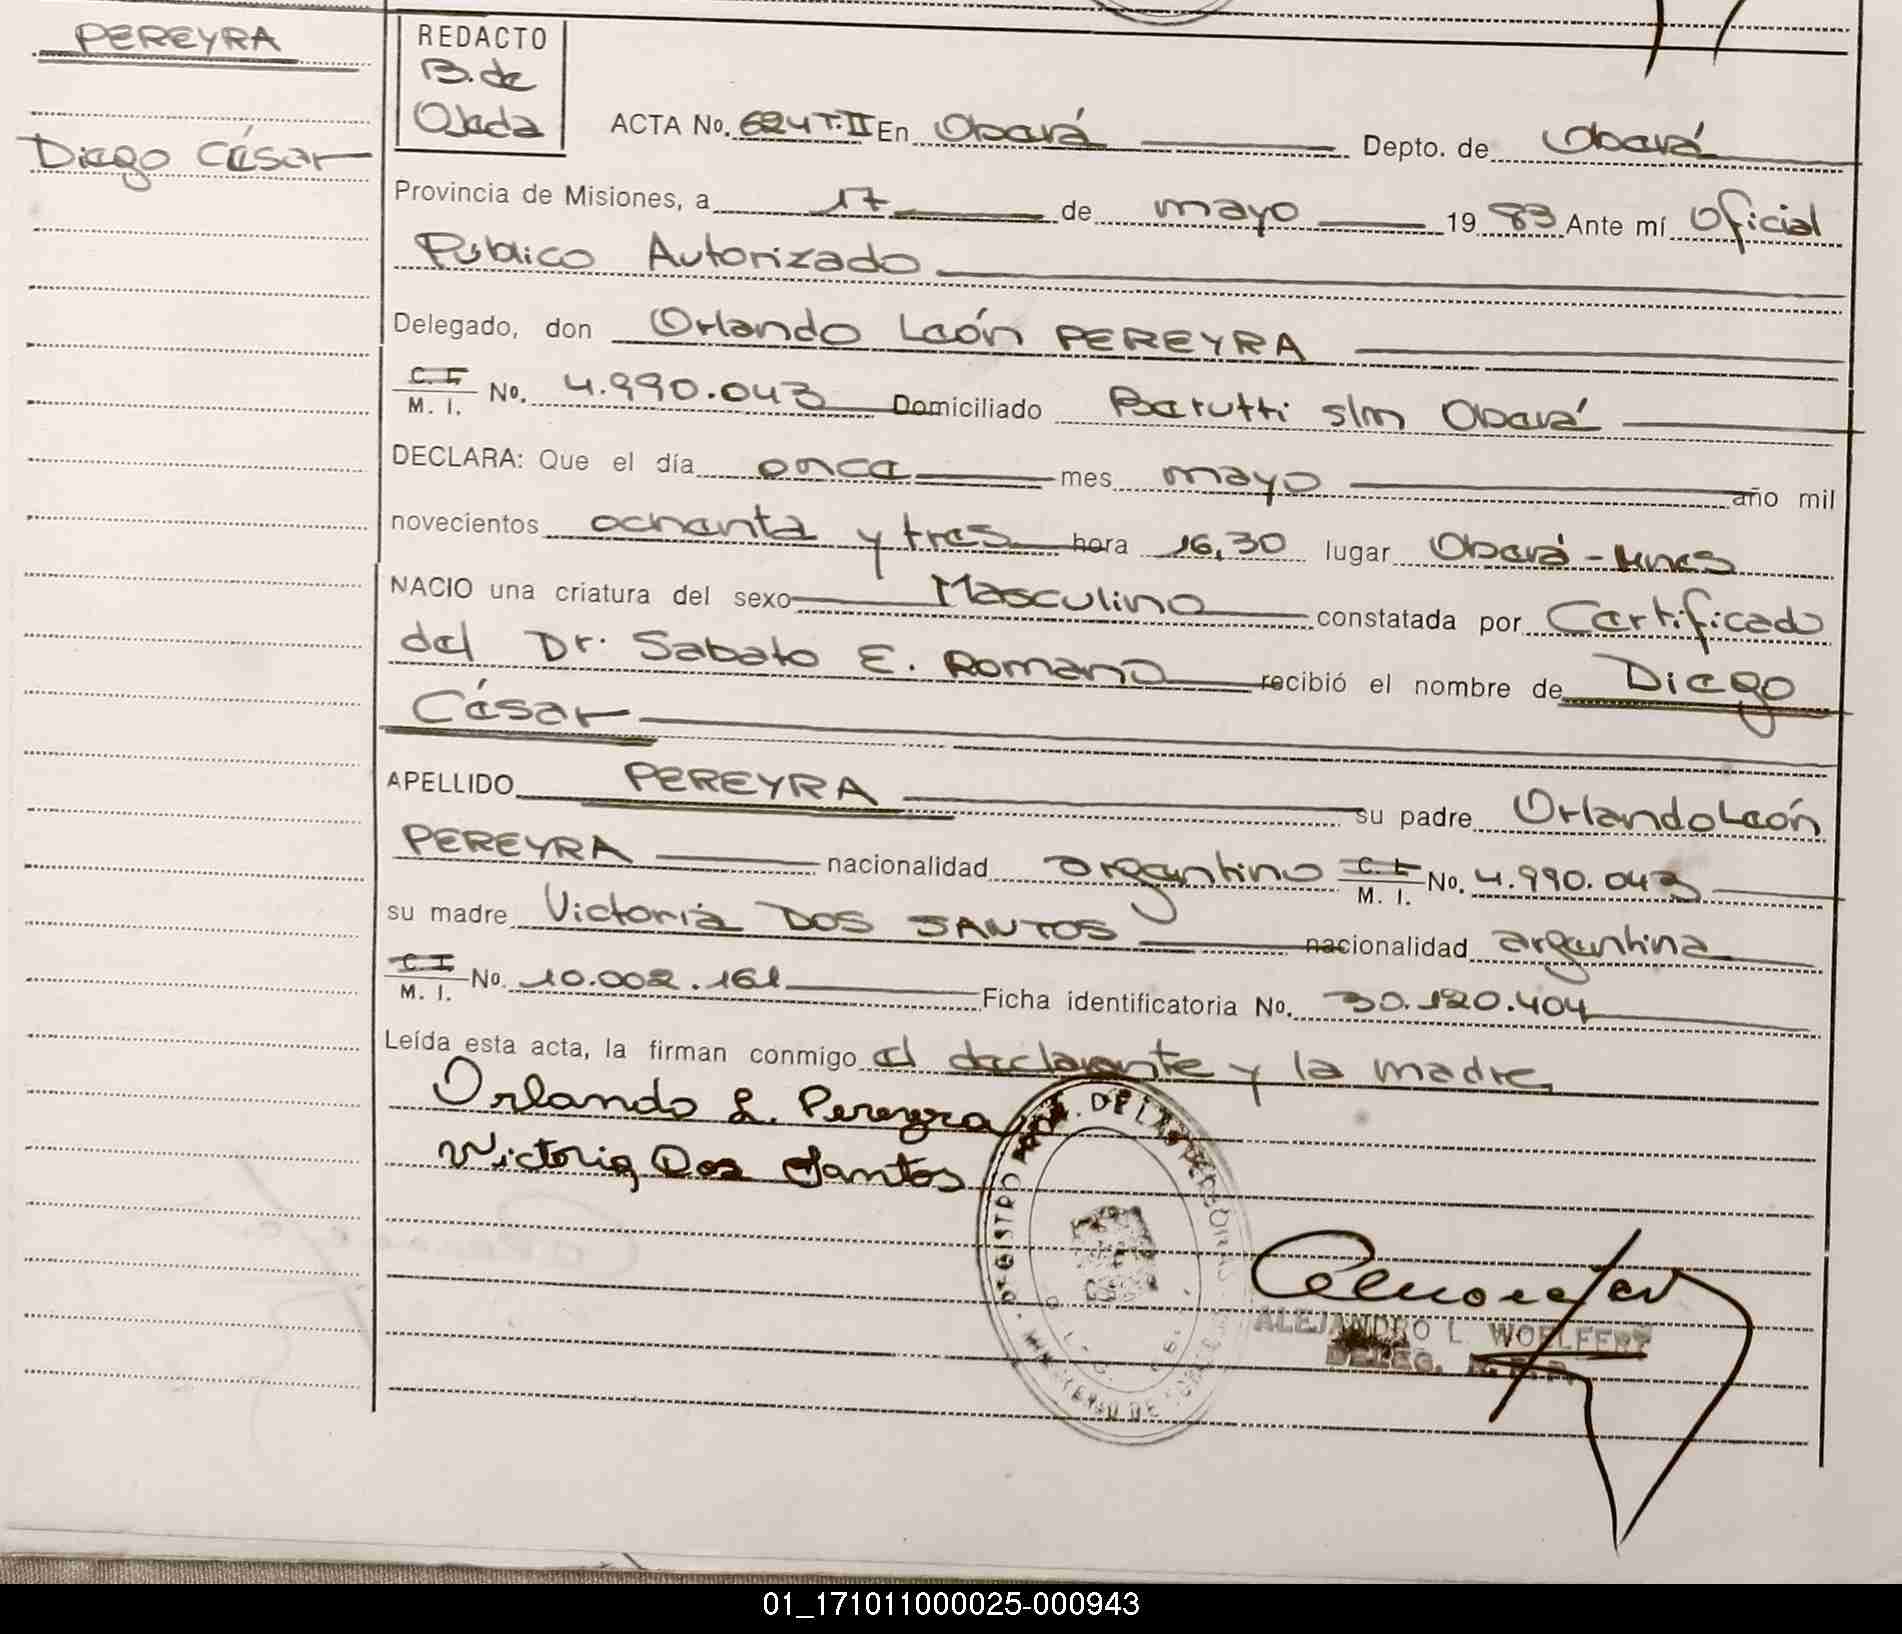 PEREYRA
Diego César
REDACTO
B. de
Ojeda
ACTA No. 624 T. II En Oberá Depto. de Oberá
Provincia de Misiones, a 17 de mayo 1983 Ante mí Oficial
Público Autorizado
Delegado, don Orlando León PEREYRA
C. I. M. I. No. 4.990.043 Domiciliado Barutti s/n Oberá
DECLARA: Que el día once mes mayo año mil
novecientos ochenta y tres hora 16,30 lugar Oberá -
NACIO una criatura del sexo Masculino constatada por Certificado
del Dr. Sabato E. Romano recibió el nombre de Diego
César
APELLIDO PEREYRA su padre Orlando León
PEREYRA nacionalidad argentino C. I. M. I. No. 4.990.043
su madre Victoria DOS SANTOS nacionalidad argentina
C. I. M. I. No. 10.002.161 Ficha identificatoria No. 30.120.404
Leída esta acta, la firman conmigo el declarante y la madre
Orlando L. Pereyra
Victoria Dos Santos
REGISTRO DE LAS PERSONAS
MINISTERIO DE
ALEJANDRO L. WOELFERT
DELEG.
01_171011000025-000943